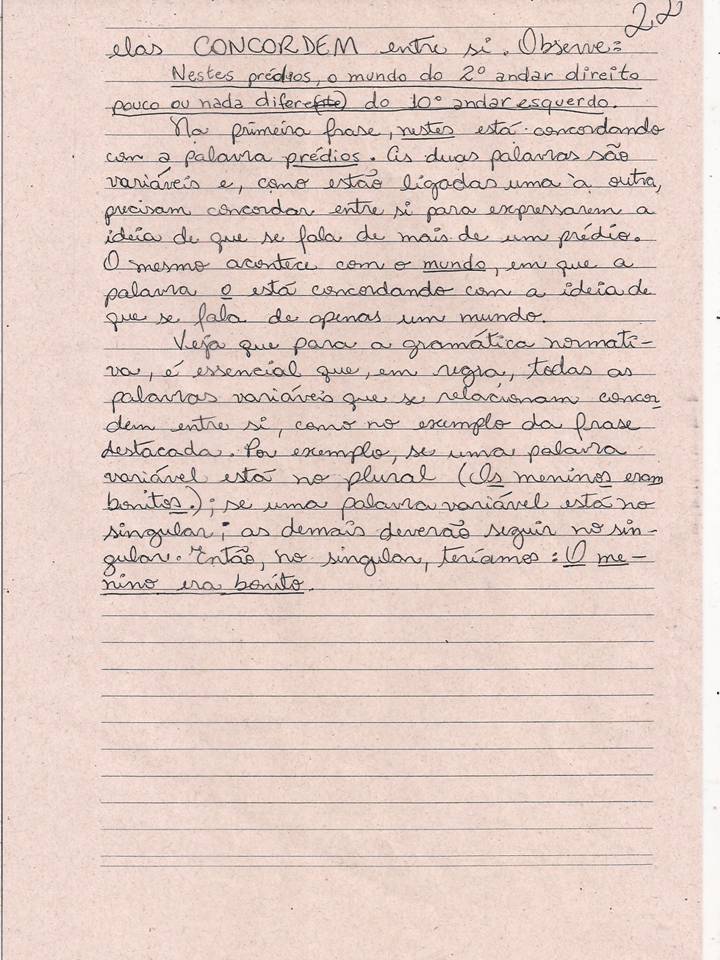 22
elas CONCORDEM entre si. Observe:
Nestes prédios, o mundo do 2º andar direito
pouco ou nada difere(nte) do 10º andar esquerdo.
Na primeira frase, nestes está concordando
com a palavra prédios. As duas palavras são
variáveis e, como estão ligadas uma à outra,
precisam concordar entre si para expressarem a
ideia de que se fala de mais de um prédio.
O mesmo acontece com o mundo, em que a
palavra o está concordando com a ideia de
que se fala de apenas um mundo.
Veja que para a gramática normati-
va, é essencial que, em regra, todas as
palavras variáveis que se relacionam concor-
dem entre si, como no exemplo da frase
destacada. Por exemplo, se uma palavra
variável está no plural (Os meninos eram
bonitos.); se uma palavra variável está no
singular; as demais deverão seguir no sin-
gular. Então, no singular, teríamos: O me-
nino era bonito.